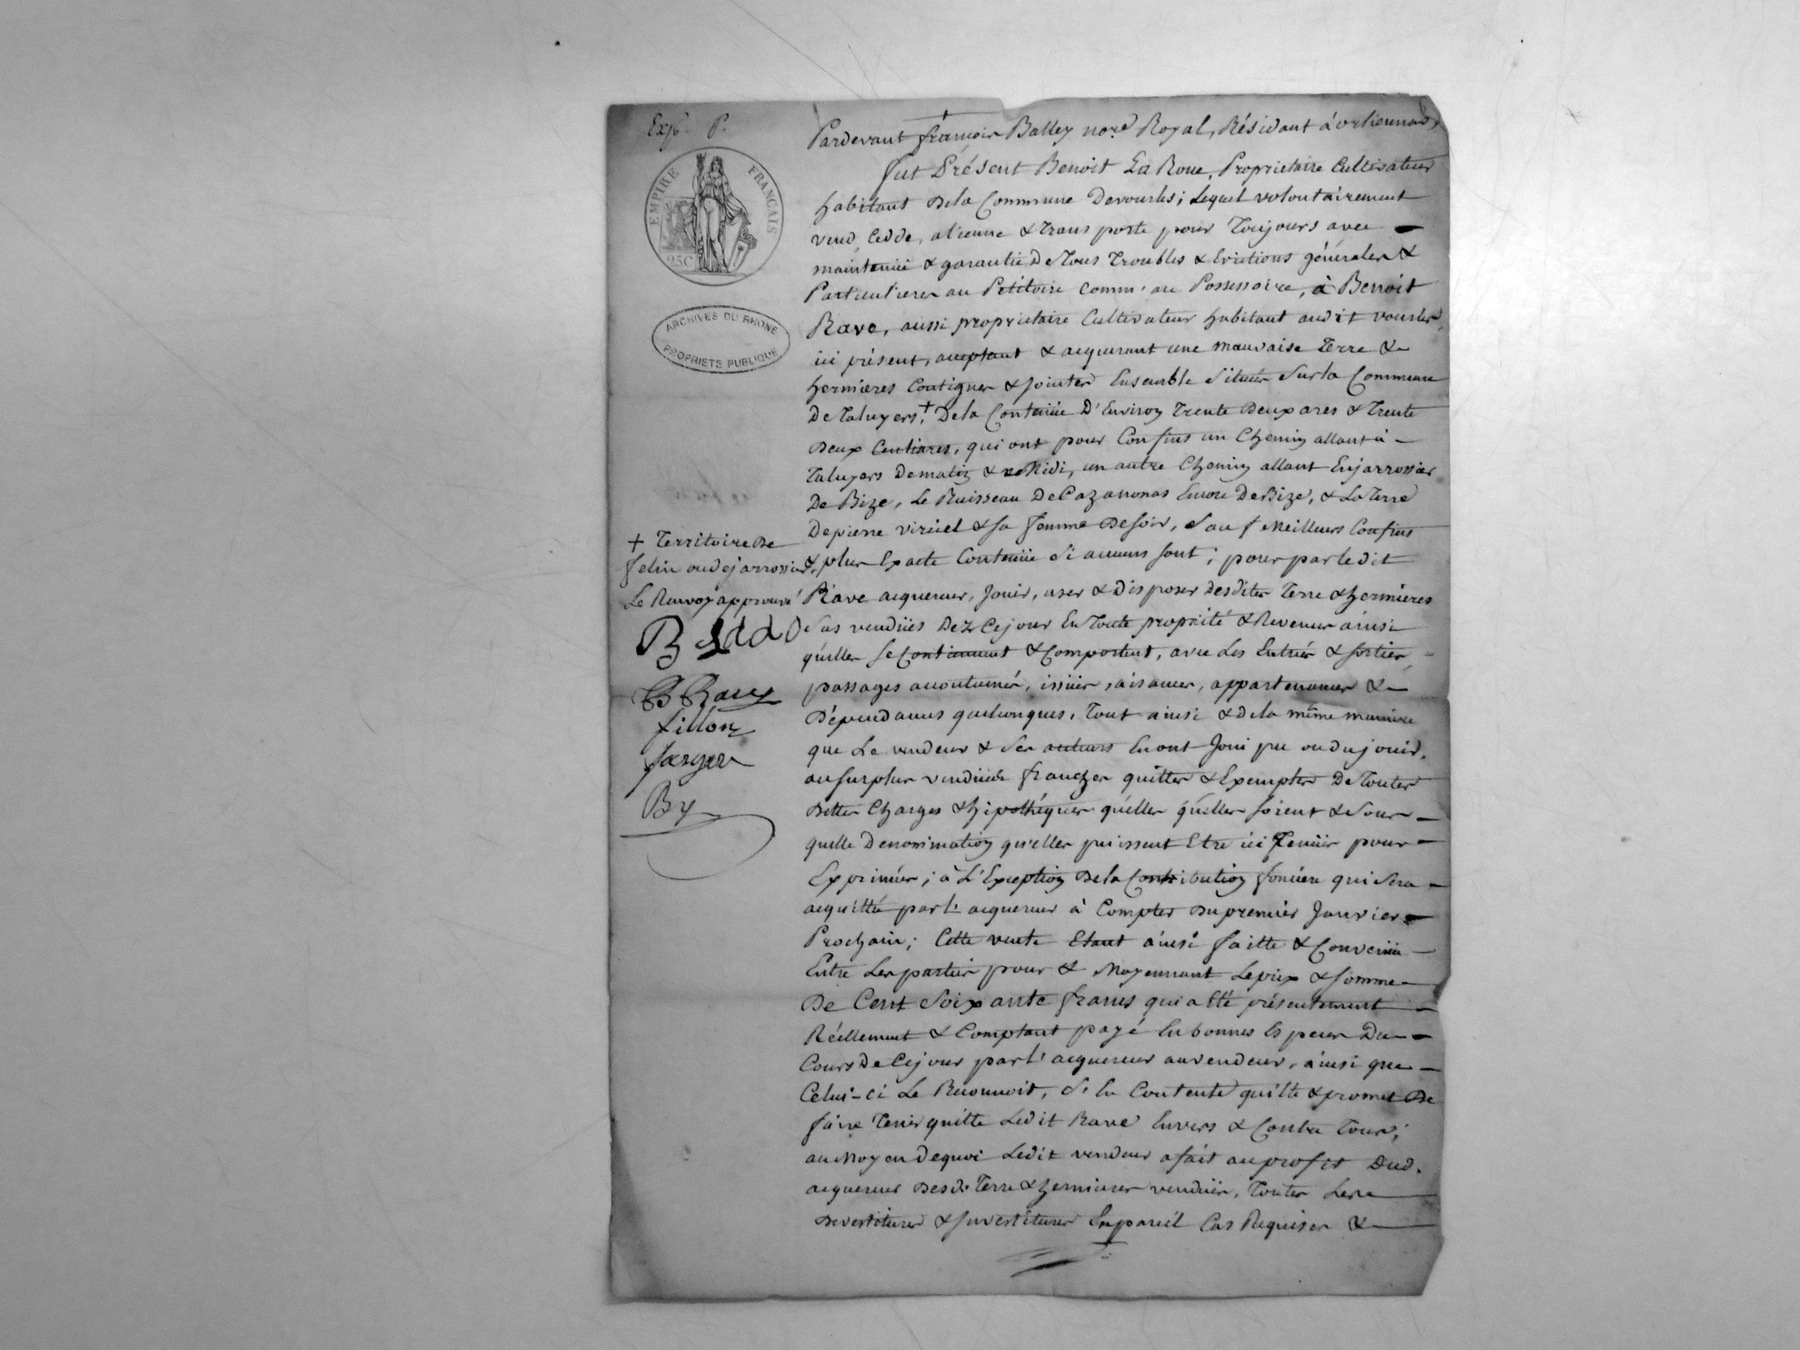 Exp. P.
EMPIRE FRANÇAIS
25C
ARCHIVES DU RHONE
PROPRIETE PUBLIQUE
Pardevant françois Balley no.re Royal, Résidant à orliennas,
fut Présent Benoit La Roue, Proprietaire Cultivateur
habitant Dela Commune Devourles; Lequel volontairement
vend, Cedde, alienne & transporte pour Toujours avec
maintenüe & garantie De Tous Troubles & Evictions générales &
Particulieres au Petitoire comm' au Possessoire, à Benoit
Rave, aussi proprietaire Cultivateur habitant audit vourles,
ici présent, acceptant & acquerant une mauvaise Terre &
hermieres Contigues & jointes Ensemble Situées Sur la Commune
De Taluyers, + Dela Contenüe D'Environ Trente Deux ares & Trente
Deux Centiares, qui ont pour Confins un Chemin allant à
Taluyers Dematin & Midi, un autre Chemin allant Enjarrossier
De Bize, Le Ruisseau De Cazannonas Encore De Bize, & La Terre
Depierre viriïel & Sa femme De Soir, Sauf Meilleurs Confins
& plus Exacte Contenüe Si aucuns Sont; pour par ledit
Rave acquereur, Jouir, user & Disposer Desdites Terre & hermieres
Sus vendües Dez Cejour En Toute proprieté & Revenus ainsi
qu'elles Se Contiennent & Comportent, avec Les Entrées & Sorties,
passages accoutumés, issües, aisances, appartenances &
Dépendances quelconques, Tout ainsi & dela même maniere
que Le vendeur & Ses auteurs En ont Joui peu ou du jouir,
au Surplus vendües franches quittes & Exemptes De Toutes
Dettes Charges & hipothéques quelles qu'elles Soient & Sous
quelle Denomination qu'elles puissent Etre ici Tenües pour
Exprimées; à L'Exception Dela Contribution fonciere qui Sera
acquittée par l'acquereur à Compter Du premier Janvier
Prochain; Cette vente Etant ainsi faitte & Convenüe
Entre Les parties pour & Moyennant Le prix & Somme
De Cent Soixante francs qui a été présentement
Réellement & Comptant payé En bonnes Especes Du
Cours De Cejour par l'acquereur au vendeur, ainsi que
Celui-ci Le Reconnoit, S'en Contente quitte & promet De
faire Tenir quitte Ledit Rave Envers & Contre Tous;
au Moyen Dequoi Ledit vendeur a fait au profit Dud.
acquereur Desd. Terre & hermieres vendües, Toutes Les
Devestitures & Investitures En pareil Cas Requises &
+ Territoire De
felin ou dejarrossier
Le Renvoy approuvé
B Rave
fillon
By